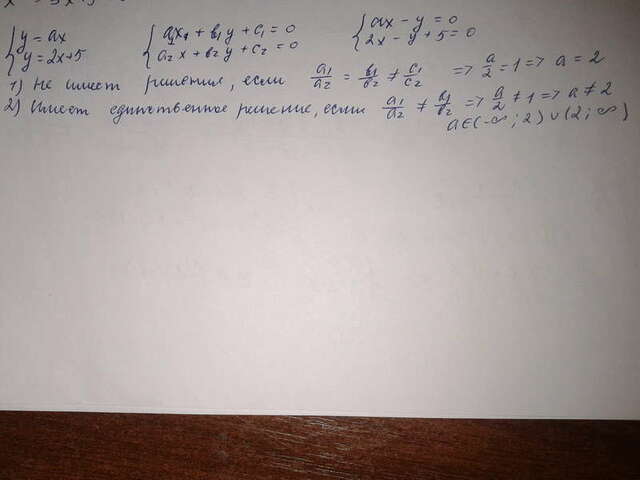 {y = ax {a₁x + b₁y + c₁ = 0 {ax - y = 0
{y = 2x+5 {a₂x + b₂y + c₂ = 0 {2x - y + 5 = 0
1) Не имеет решения, если a₁/a₂ = b₁/b₂ ≠ c₁/c₂ => a/2 = 1 => a = 2
2) Имеет единственное решение, если a₁/a₂ ≠ b₁/b₂ => a/2 ≠ 1 => a ≠ 2
a∈(-∞; 2) ∪ (2; ∞)